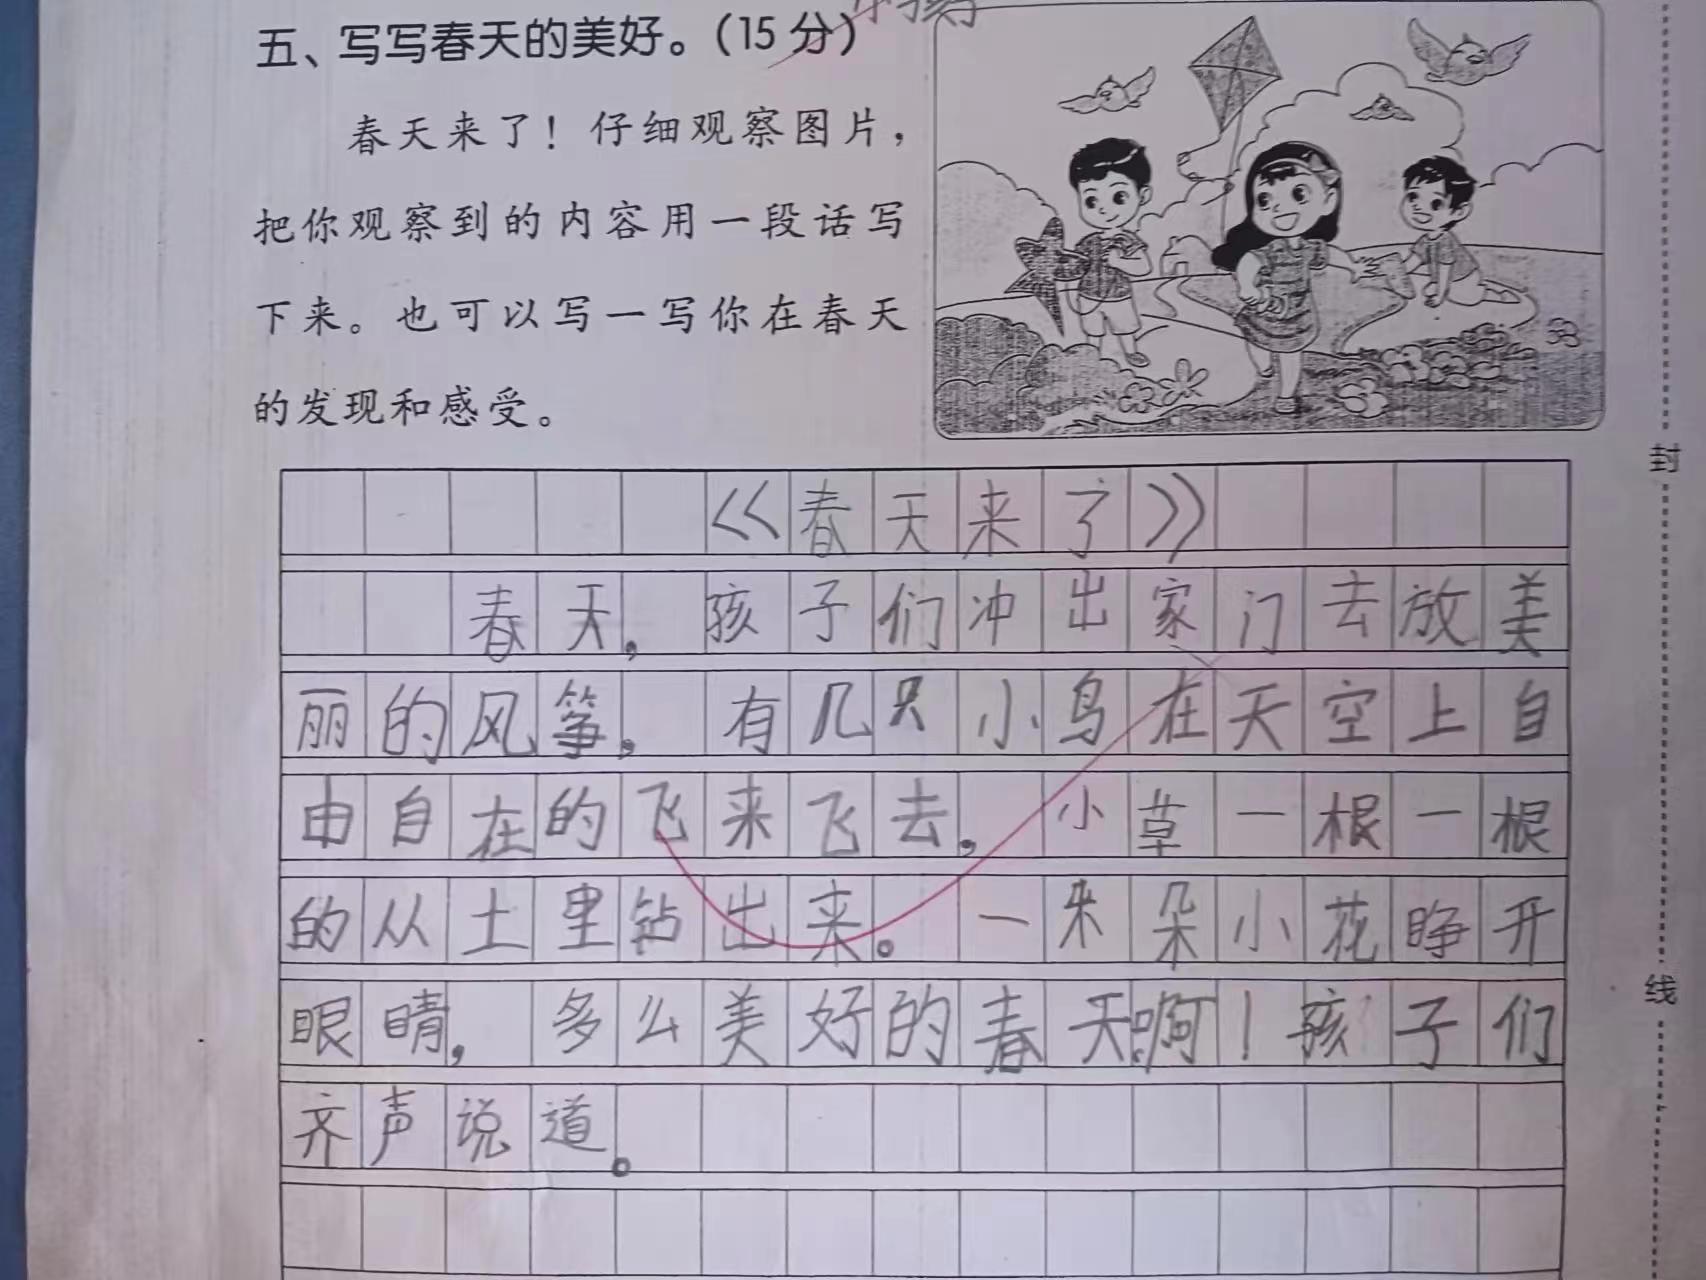 五、写写春天的美好。（15分）
春天来了！仔细观察图片，
把你观察到的内容用一段话写
下来。也可以写一写你在春天
的发现和感受。
封
线
《春天来了》
春天，孩子们冲出家门去放美
丽的风筝，有几只小鸟在天空上自
由自在的飞来飞去，小草一根一根
的从土里钻出来。一朵朵小花睁开
眼睛，多么美好的春天啊！孩子们
齐声说道。